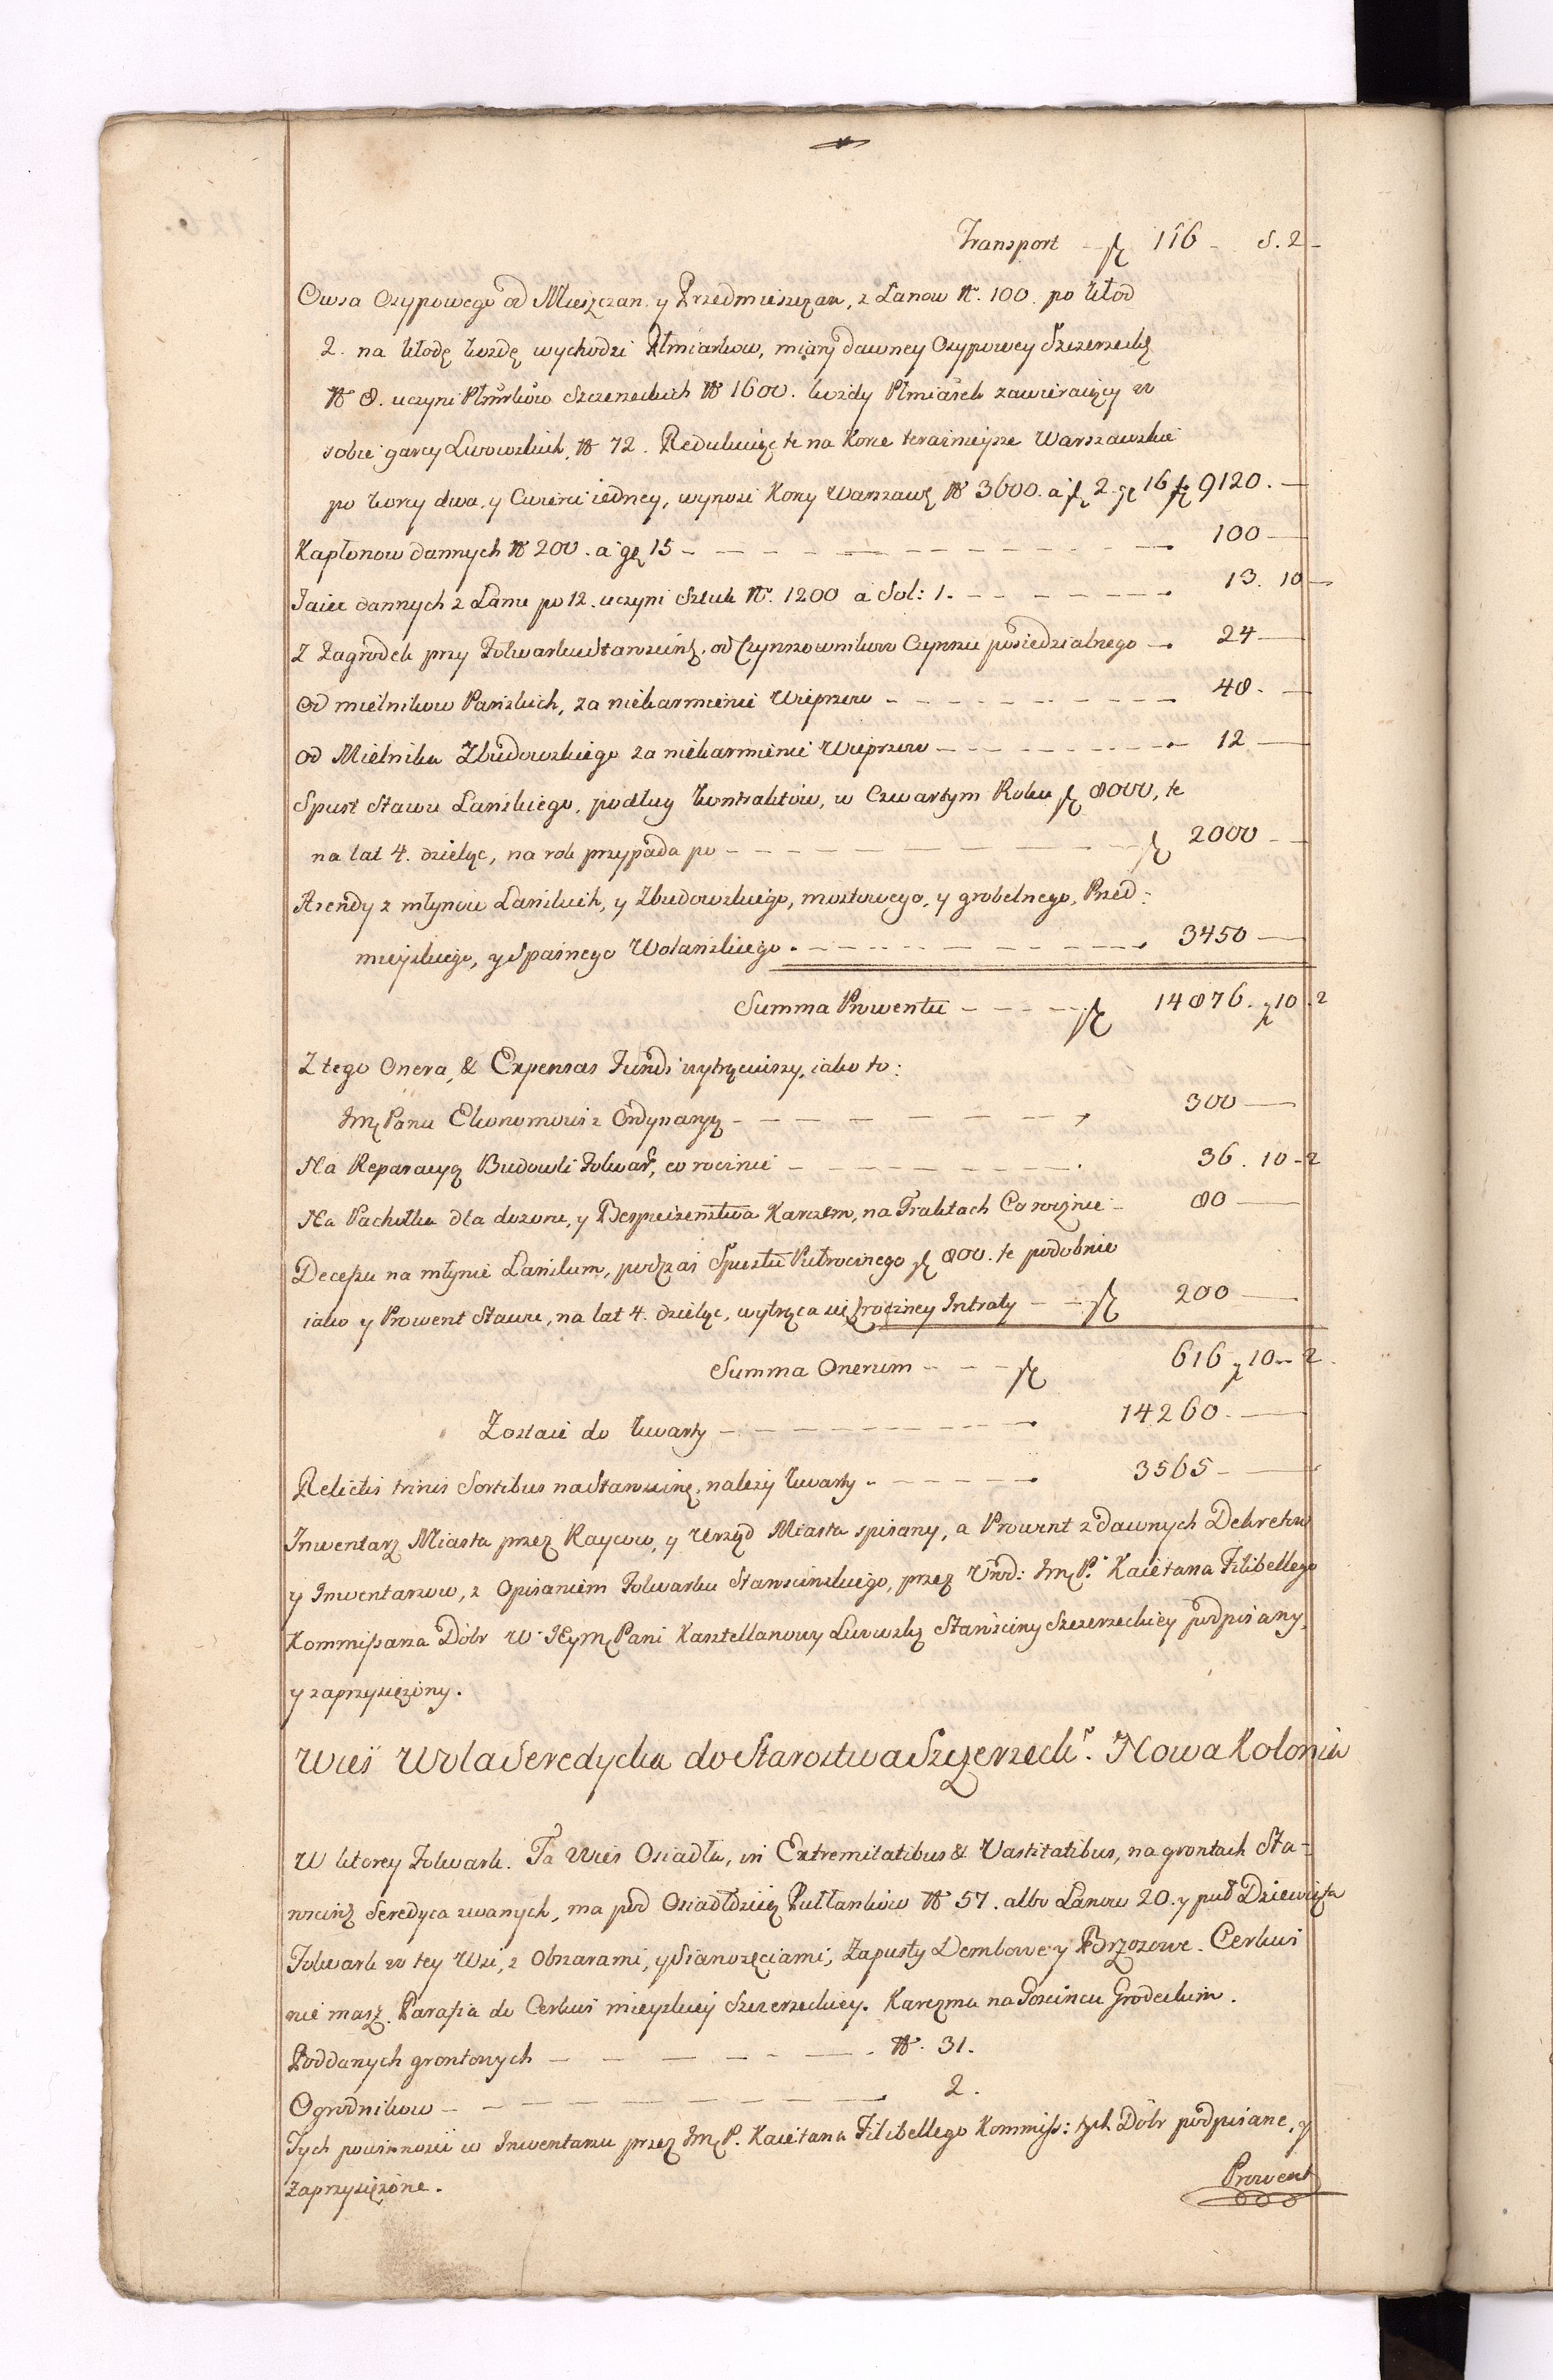 Transport — fl 116 — s. 2 —
Owsa Osypowego od Mieszczan y Przedmieszczan, z Lanow N. 100. po kłod
2. na kłodę kożdę wychodzi Płmiarkow, miary dawney Osypowey Szczerzeckiey
N 8. uczyni Płmiarkow Szczerzeckich N 1600. kożdy Płmiarek zawieraiący w
sobie garcy Lwowskich, N 72. Redukuiąc te na Korce teraznieysze Warszawskie
po korcy dwa, y Cwierci iedney, wynosi Korcy Warszaws N 3600. a fl 2. g 16 fl 9120. —
Kapłonow dannych N 200. a gr 15 — 100 —
Jaiec dannych z Lanu po 12. uczyni Sztuk N. 1200 a Sol: 1. — 13. 10 —
Z Zagrodek przy Folwarku Starościns. od Czynszownikow Czynszu posiedzialnego — 24 —
Od mielnikow Pańskich, za niekarmienie Wieprzow — 48. —
Od Mielnika Zbudowskiego za niekarmienie Wieprzow — 12 —
Spust Stawu Lańskiego, podług kontraktów, w Czwartym Roku fl 8000, te
na lat 4. dzieląc, na rok przypada po — fl 2000 —
Arendy z młynow Lańskich, y Zbudowskiego, mostowego, y grobelnego, Przed-
mieyskiego, y Spaśnego Wolańskiego. — 3450 —
Summa Prowentu — fl 14876. g 10. 2
Z tego Onera, & Expensas Fundi wytrąciwszy, iako to:
Jmę Panu Ekonomowi z Ordynaryą — 300 —
Na Reparacyą Budowli Folwar, co rocznie — 36. 10 - 2
Na Pachołka dla dozoru, y Bespieczenstwa Karczem, na Traktach Corocznie — 80 —
Decessu na młynie Lańskum, podczas Spustu Pułrocznego fl 800. te podobnie
iako y Prowent Stawu, na lat 4. dzieląc, wytrąca się z roczney Intraty — fl 200 —
Summa Onerum — fl 616 g 10 — 2.
Zostaie do kwarty — 14260. —
Relictis trinis Sortibus na Starościnę, należy kwarty — 3565 —
Inwentarz Miasta przez Raycow, y Urząd Miasta spisany, a Prowent z dawnych Dekretow
y Inwentarzow, z Opisaniem Folwarku Starościnskiego, przez Urod: Jmę P. Kaietana Filibellego
Kommissarza Dobr W. JEymę Pani Kasztellanowy Lwowsky Starościny Szczerzeckiey podpisany,
y zaprzysiężony.
Wieś Wola Seredycka do Starostwa Szczerzeck. Nowa Kolonia
W ktorey Folwark. Ta Wieś Osiadła, in Extremitatibus & Vastitatibus, na grontach Sta-
rościns Seredyca zwanych, ma pod Osiadłością Pułłankow N 57. albo Lanow 20. y puł Dziewięta
Folwark w tey Wsi, z Obszarami, y Sianozęciami, Zapusty Dembowe y Brzozowe. Cerkwi
nie masz. Parafia do Cerkwi mieyskiey Szczerzeckiey. Karczma na Goscincu Grodeckim.
Poddanych grontowych — N. 31.
Ogrodnikow — 2.
Tych powinnosci w Inwentarzu przez Jmę P. Kaietana Filibellego Kommiss: tych Dobr podpisane, y
zaprzysiężone.
Prowent